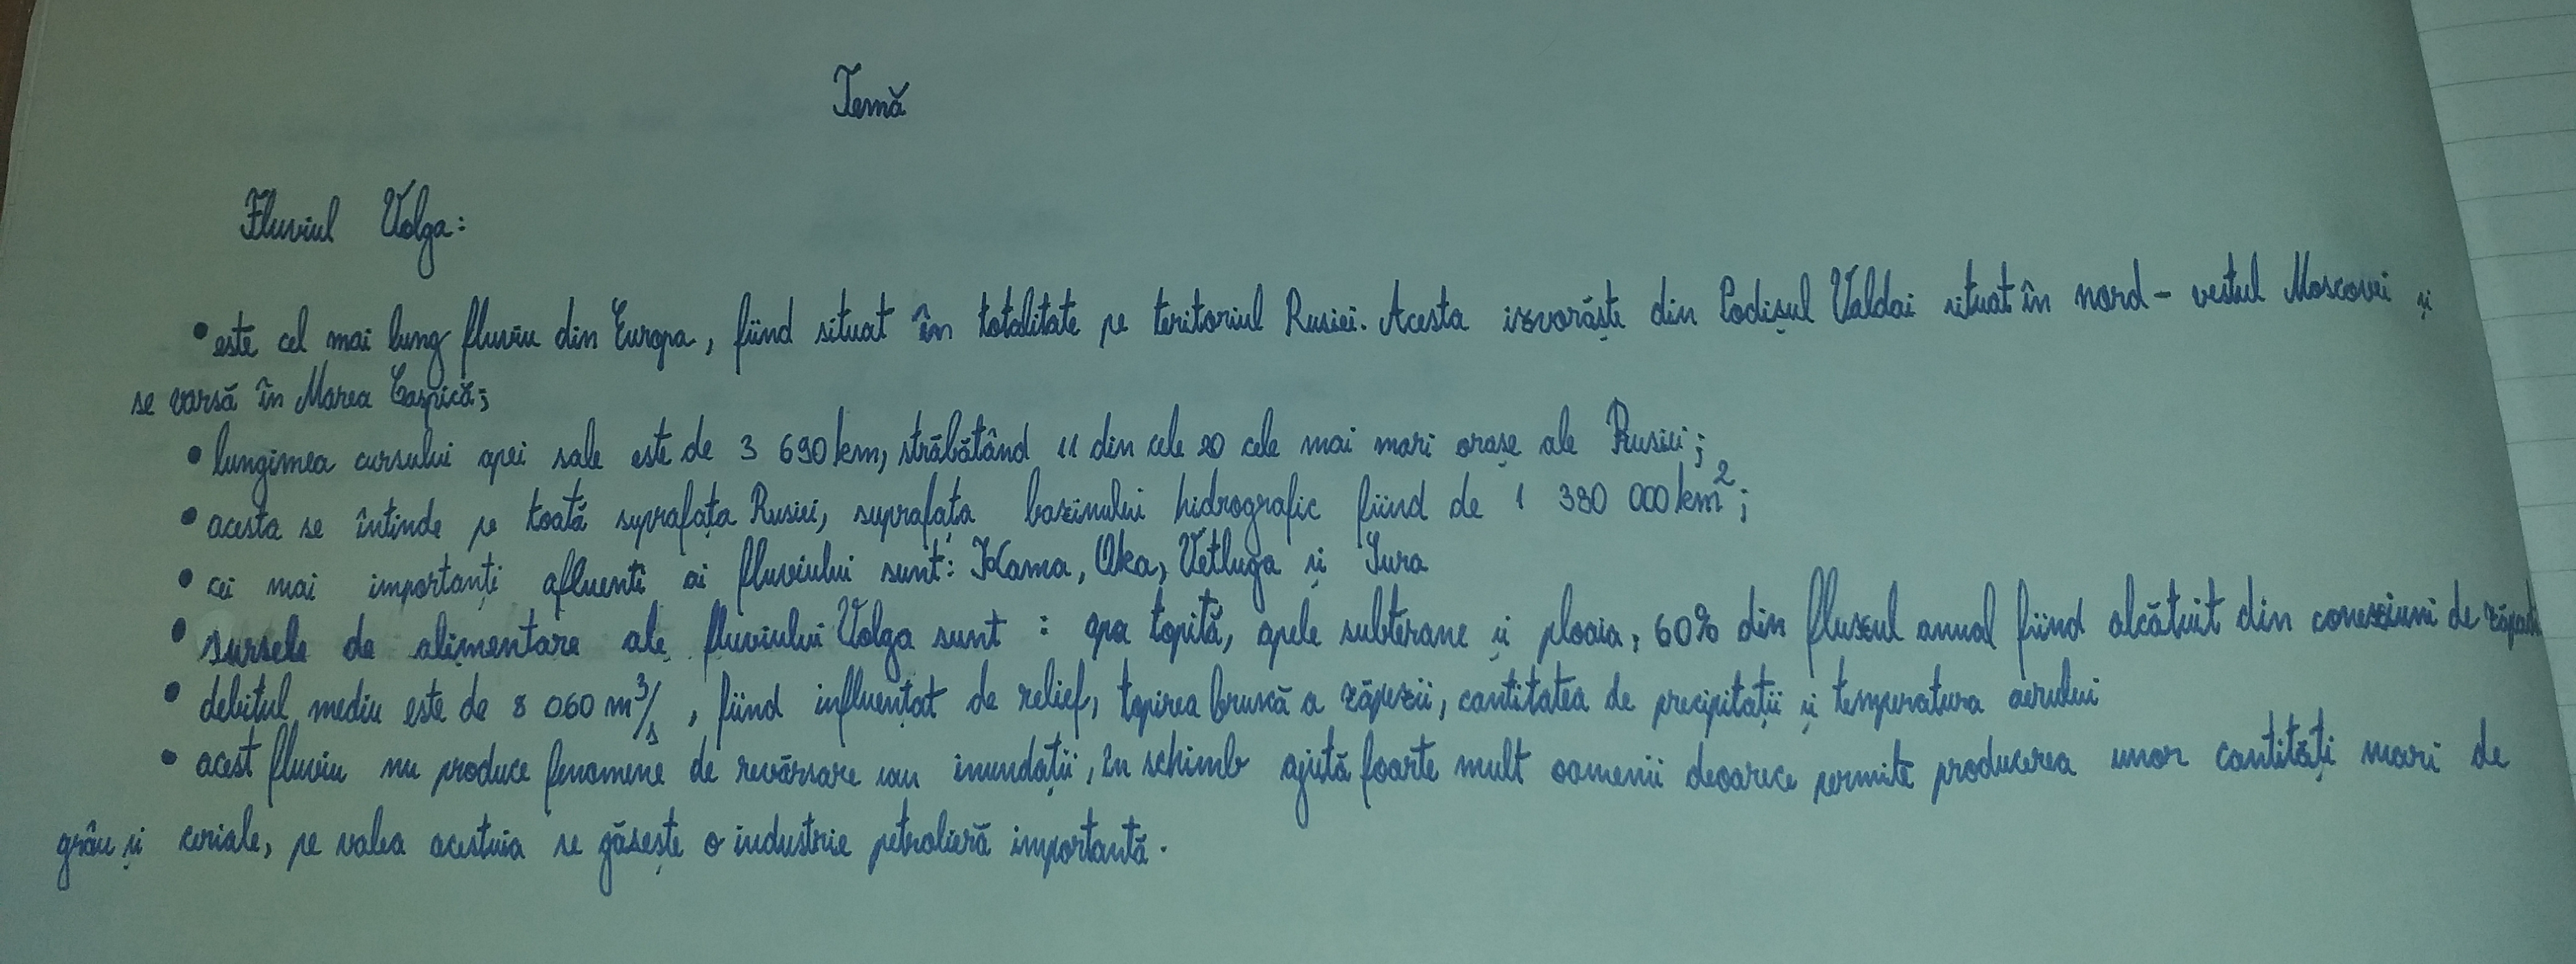 Temă
Fluviul Volga:
• este cel mai lung fluviu din Europa, fiind situat în totalitate pe teritoriul Rusiei. Acesta izvorăște din Podișul Valdai situat în nord - vestul Moscovei și
se varsă în Marea Caspică;
• lungimea cursului apei sale este de 3 690 km, străbătând 11 din cele 20 cele mai mari orașe ale Rusiei;
• acesta se întinde pe toată suprafața Rusiei, suprafața bazinului hidrografic fiind de 1 380 000 km²;
• cei mai importanți afluenti ai fluviului sunt: Kama, Oka, Vetluga și Sura
• sursele de alimentare ale fluviului Volga sunt : apa topită, apele subterane și ploaia, 60% din fluxul anual fiind alcătuit din conexiuni de
• debitul mediu este de 8 060 m³/s , fiind influențat de relief, topirea bruscă a zăpezii, cantitatea de precipitații și temperatura aerului
• acest fluviu nu produce fenomene de revărsare sau inundații, în schimb ajută foarte mult oamenii deoarece permite producerea unor cantități mari de
grâu și ceriale, pe valea acestuia se găsește o industrie petrolieră importantă.